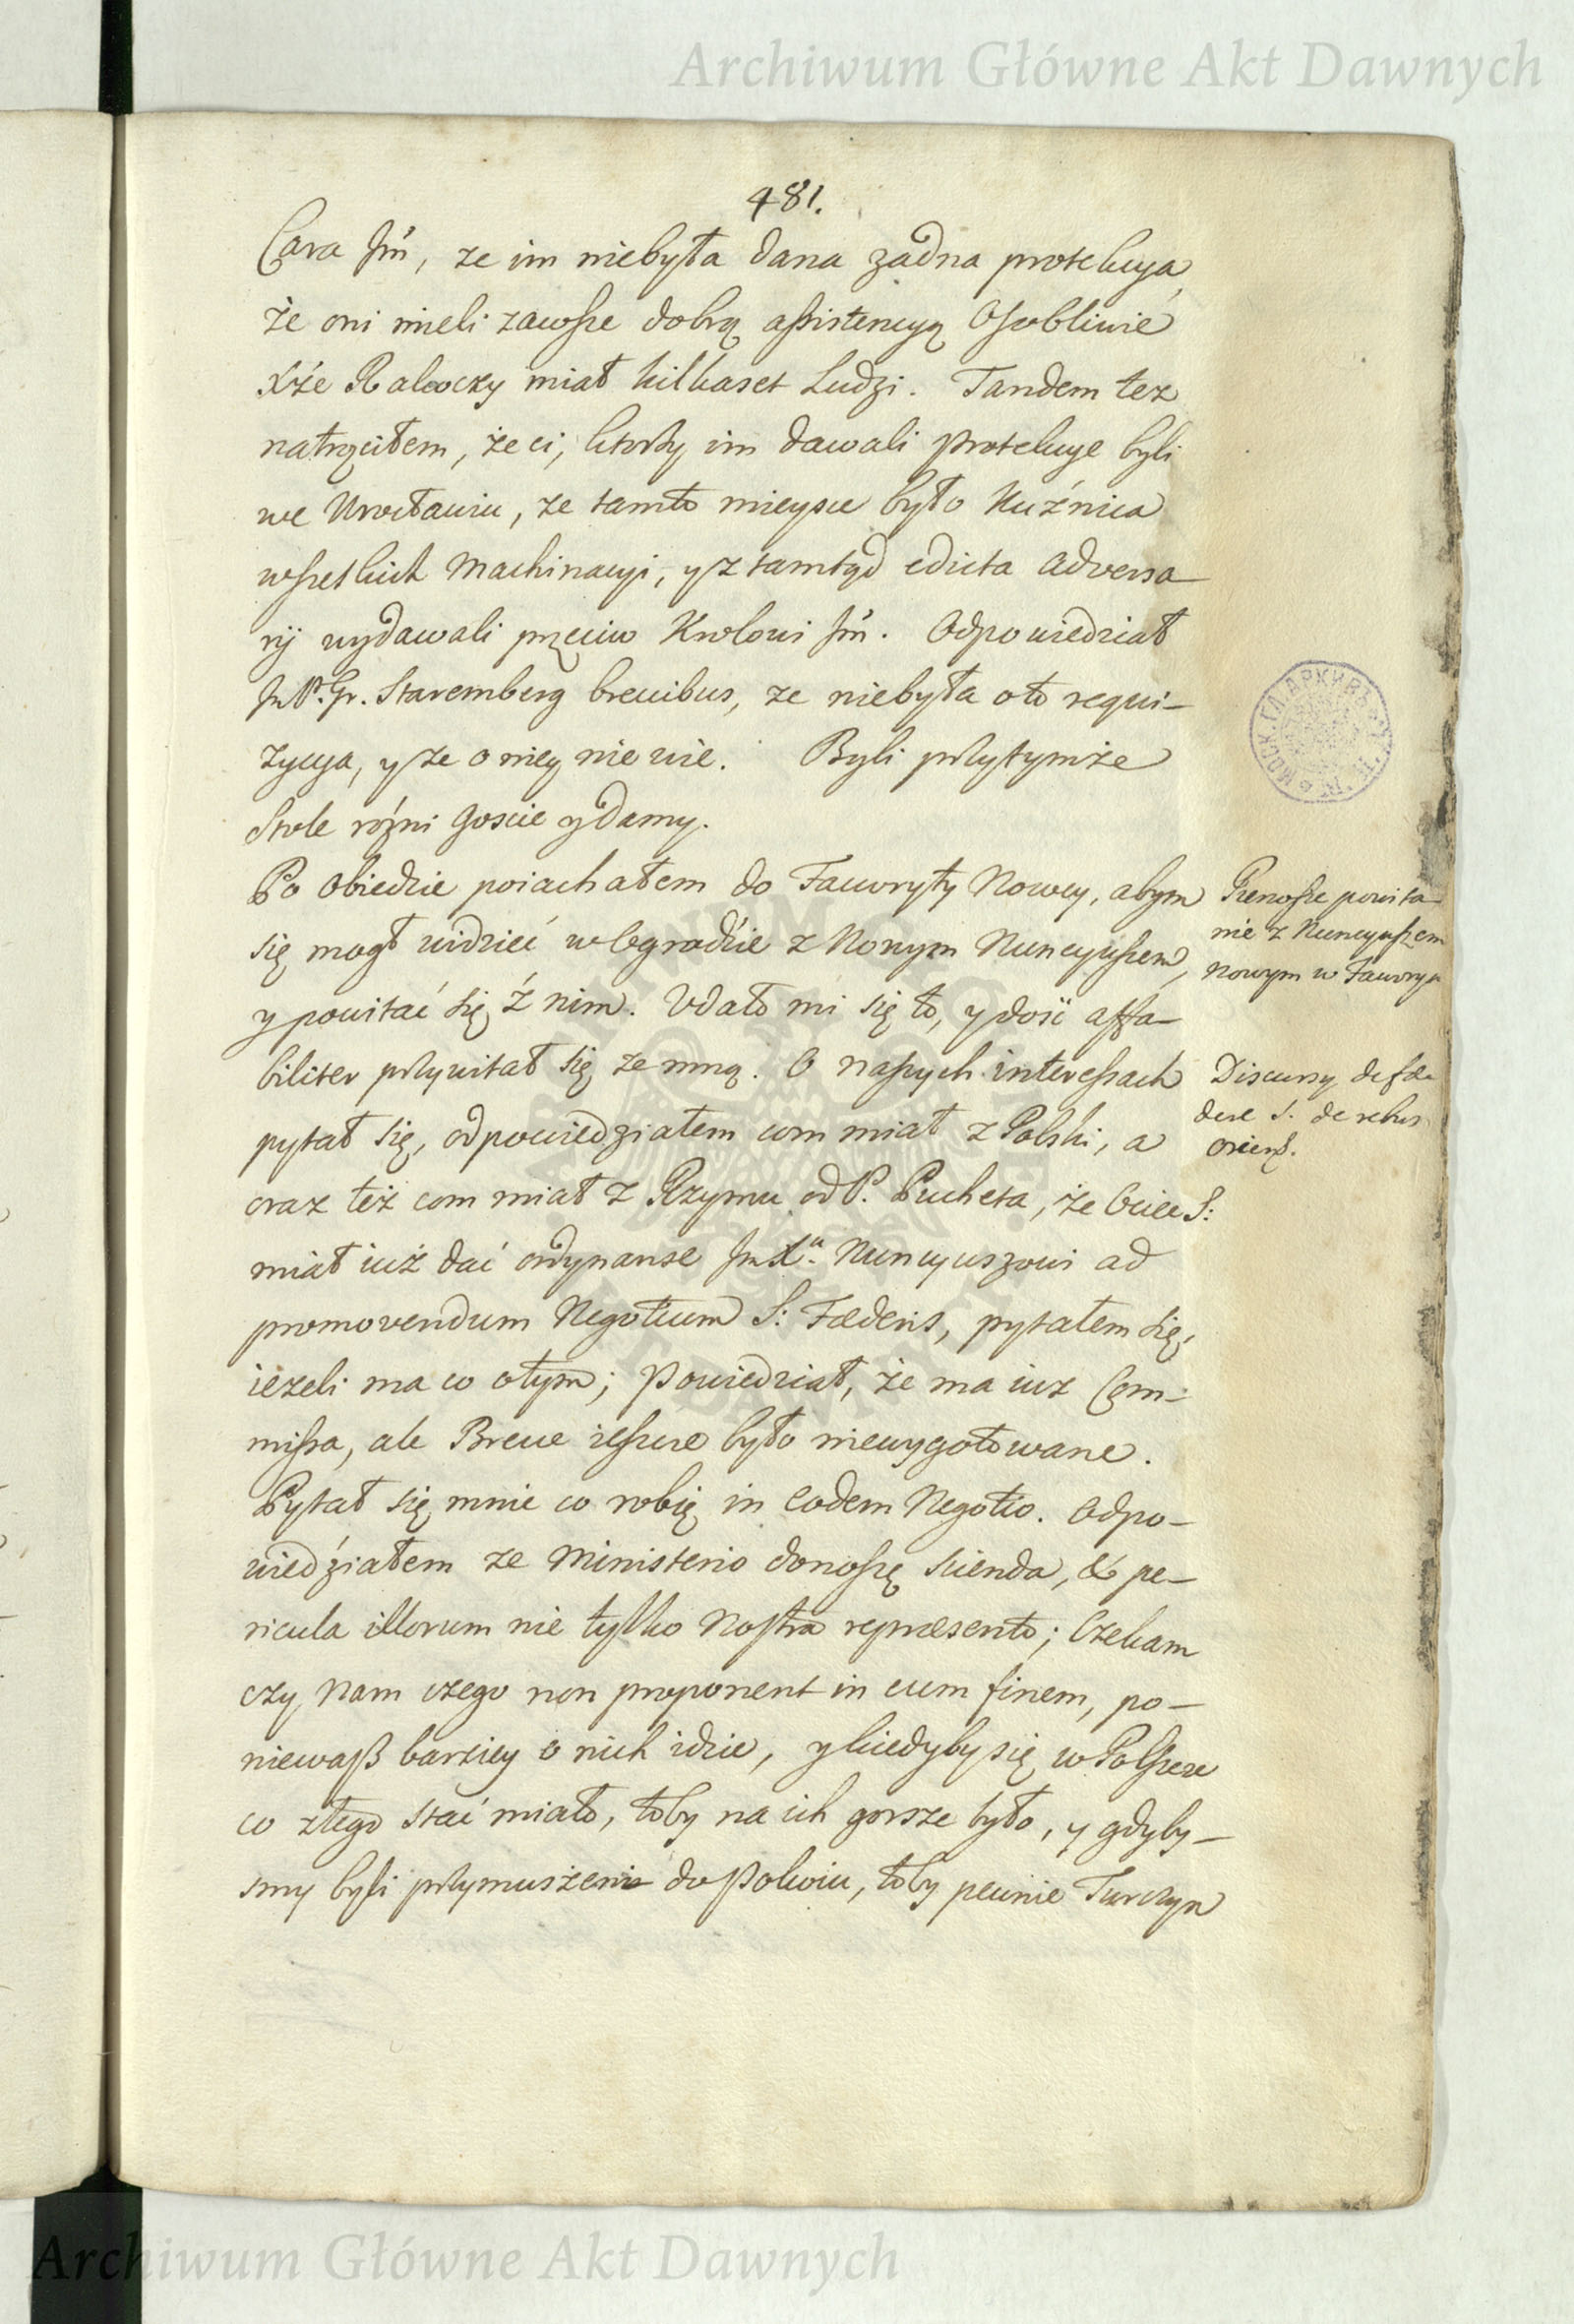 Archiwum Główne Akt Dawnych
481.
Cara Jm̃, ze im niebyła dana żadna protekcya,
że oni mieli zawsze dobrą assistencyą Osobliwie
Xże Rakoczy miał kilkaset Ludzi. Tandem tez
natrąciłem, że ci, ktorzy im dawali protekcye byli
we Wrocławiu, ze tamto mieysce było Kuźnica
wszetkich Machinacyi, y z tamtąd edicta adversa-
rij wydawali przeciw Krolowi Jm̃. Odpowiedział
Jm P. Gr. Staremberg brevibus, ze niebyła o to requi-
zycya, y ze o niey nie wie. Byli przytymże
Stole różni Goscie y Damy.
Po obiedzie poiachałem do Fauoryty Nowey, abym
się mogł widzieć w Ogrodzie z Nowym Nuncyuszem,
y powitać się z nim. Udało mi się to, y dość affa-
biliter przywitał się ze mną. O naszych interessach
pytał się, odpowiedziałem com miał z Polski, a
oraz też com miał z Rzymu od P. Pucheta, że Ociec S:
miał iuż dać ordynanse Jm X.ᵘ Nuncyuszowi ad
promovendum Negotium S: Fœderis, pytałem się,
ieżeli ma co o tym; Powiedział, że ma iuz Com-
missa, ale Breue ieszcze było niewygotowane.
Pytał się mnie co robię in eodem Negotio. Odpo-
wiedziałem ze Ministerio donoszę scienda, & pe-
ricula illorum nie tylko Nostra repræsento; Czekam
czy Nam czego non proponent in eum finem, po-
niewasz barziey o nich idzie, y kiedyby się w Polszcze
co złego stać miało, toby na ich gorsze było, y gdyby-
smy byli przymuszeni do Pokoiu, toby pewnie Turczyn
Przenosze powita-
nie z Nuncyuszem
nowym w Fauoryt
Discursy de fœ-
dere S. de rebus
orient.
МОСК. ГЛ. АРХИВЪ
Archiwum Główne Akt Dawnych